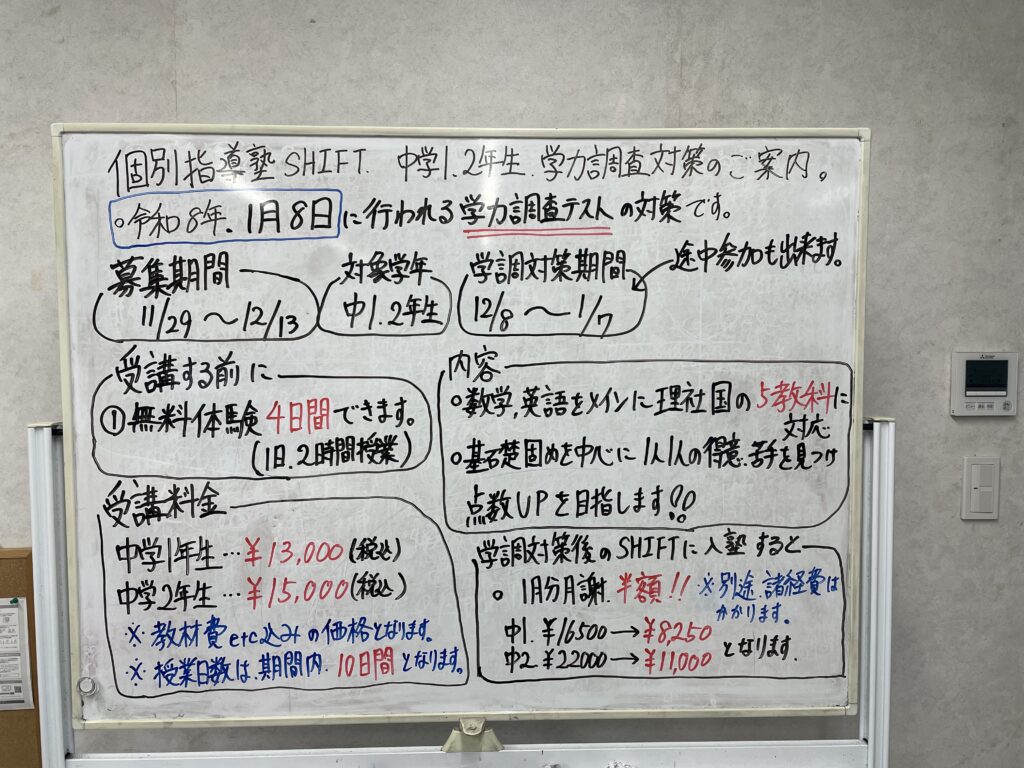 個別指導塾SHIFT. 中学1.2年生.学力調査対策のご案内。
○令和8年.1月8日に行われる学力調査テストの対策です。
募集期間
11/29～12/13
対象学年
中1.2年生
学調対策期間
12/8～1/7
途中参加も出来ます。
受講する前に
①無料体験4日間できます。
(1日.2時間授業)
内容
○数学,英語をメインに理社国の5教科に
対応
○基礎固めを中心に1人1人の得意.苦手を見つけ
点数UPを目指します!!
受講料金
中学1年生…¥13,000(税込)
中学2年生…¥15,000(税込)
※教材費etc込みの価格となります。
※授業日数は.期間内.10日間となります。
学調対策後のSHIFTに入塾すると
○1月分月謝.半額!!※別途.諸経費は
かかります。
中1.¥16500→¥8,250
中2¥22000→¥11,000
となります.